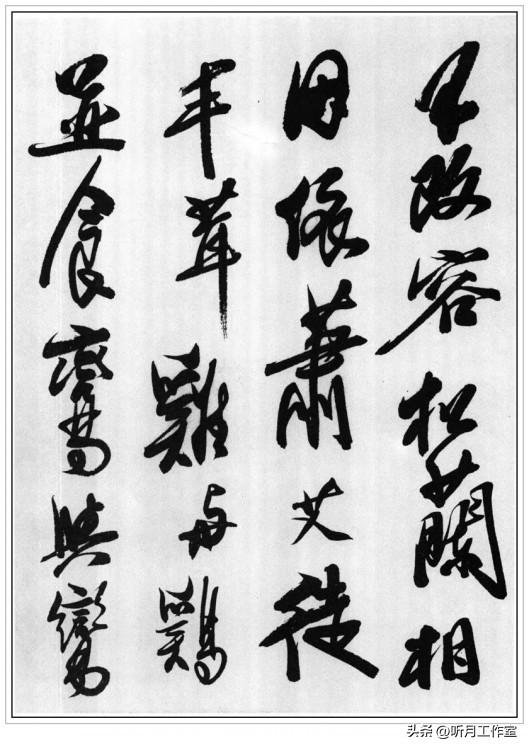 不改容松蘭相
因依蕭艾徒
丰茸雞与鷄
並食鸞與鸞
头条 @听月工作室